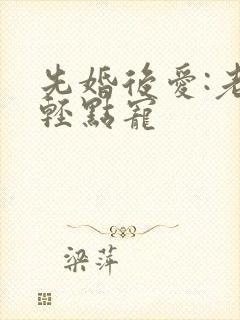 先婚後愛:老
輕點寵
梁萍